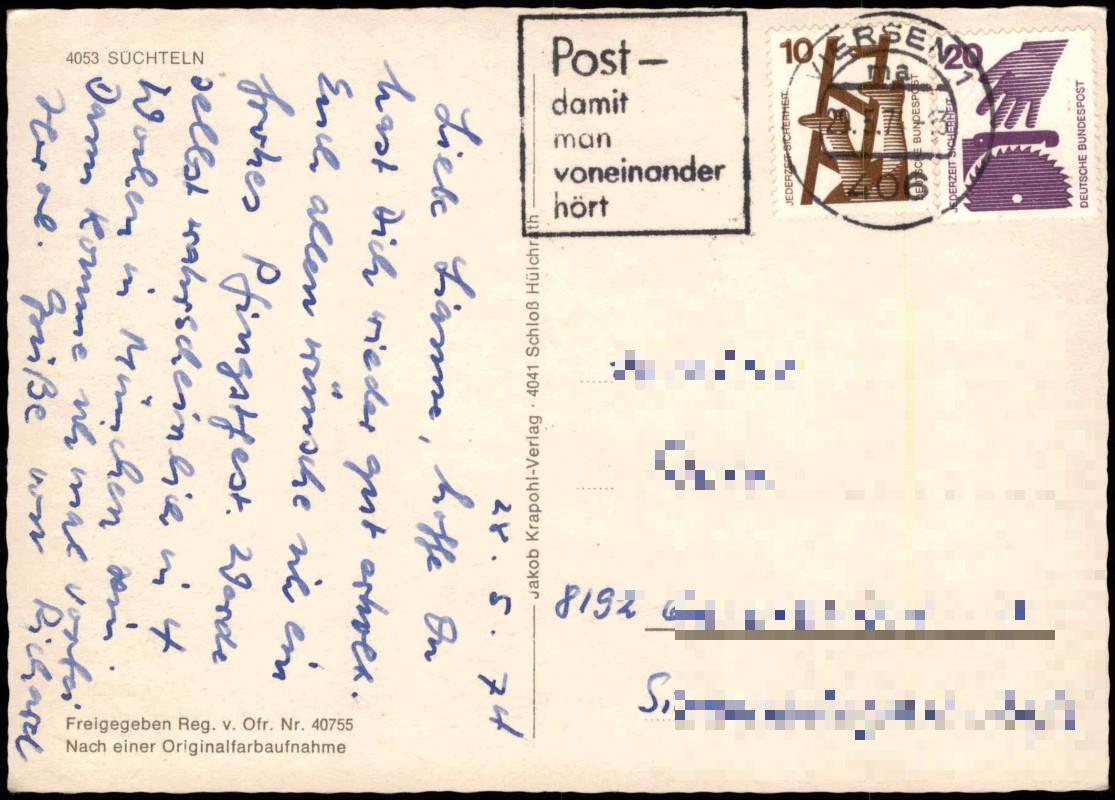 4053 SÜCHTELN
28.5.74
Liebe Lianne, hoffe Du
hast Dich wieder gut erholt.
Euch allen wünsche ich ein
frohes Pfingstfest. Werde
selbst wahrscheinlich in 4
Wochen in München sein.
Dann komme ich mal vorbei
Herzl. Grüße von Richard
Freigegeben Reg. v. Ofr. Nr. 40755
Nach einer Originalfarbaufnahme
Jakob Krapohl-Verlag · 4041 Schloß Hülchrath
Post–
damit
man
voneinander
hört
VIERSEN 1
ma
406
10
JEDERZEIT SICHERHEIT
DEUTSCHE BUNDESPOST
20
JEDERZEIT SICHERHEIT
DEUTSCHE BUNDESPOST
8192